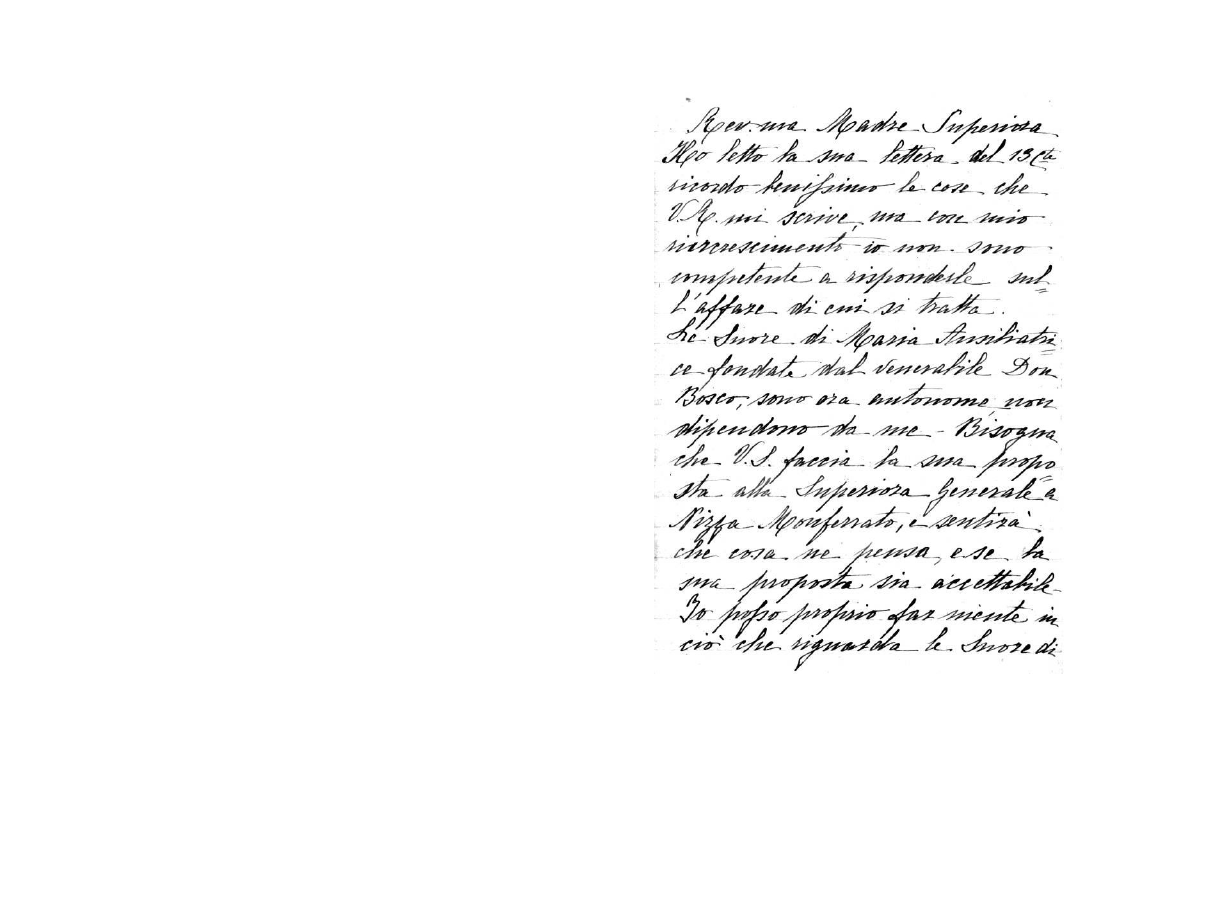 Rev.ma Madre Superiora
Ho letto la sua lettera del 13 Cte
ricordo benissimo le cose che
V.R. mi scrive, ma con mio
rincrescimento io non sono
competente a risponderle sul=
l'affare di cui si tratta.
Le Suore di Maria Ausiliatri=
ce fondate dal venerabile Don
Bosco, sono ora autonome, non
dipendono da me - Bisogna
che V.S. faccia la sua propo=
sta alla Superiora Generale a
Nizza Monferrato, e sentirà
che cosa ne pensa, e se la
sua proposta sia accettabile-
Io posso proprio far niente in
ciò che riguarda le Suore di